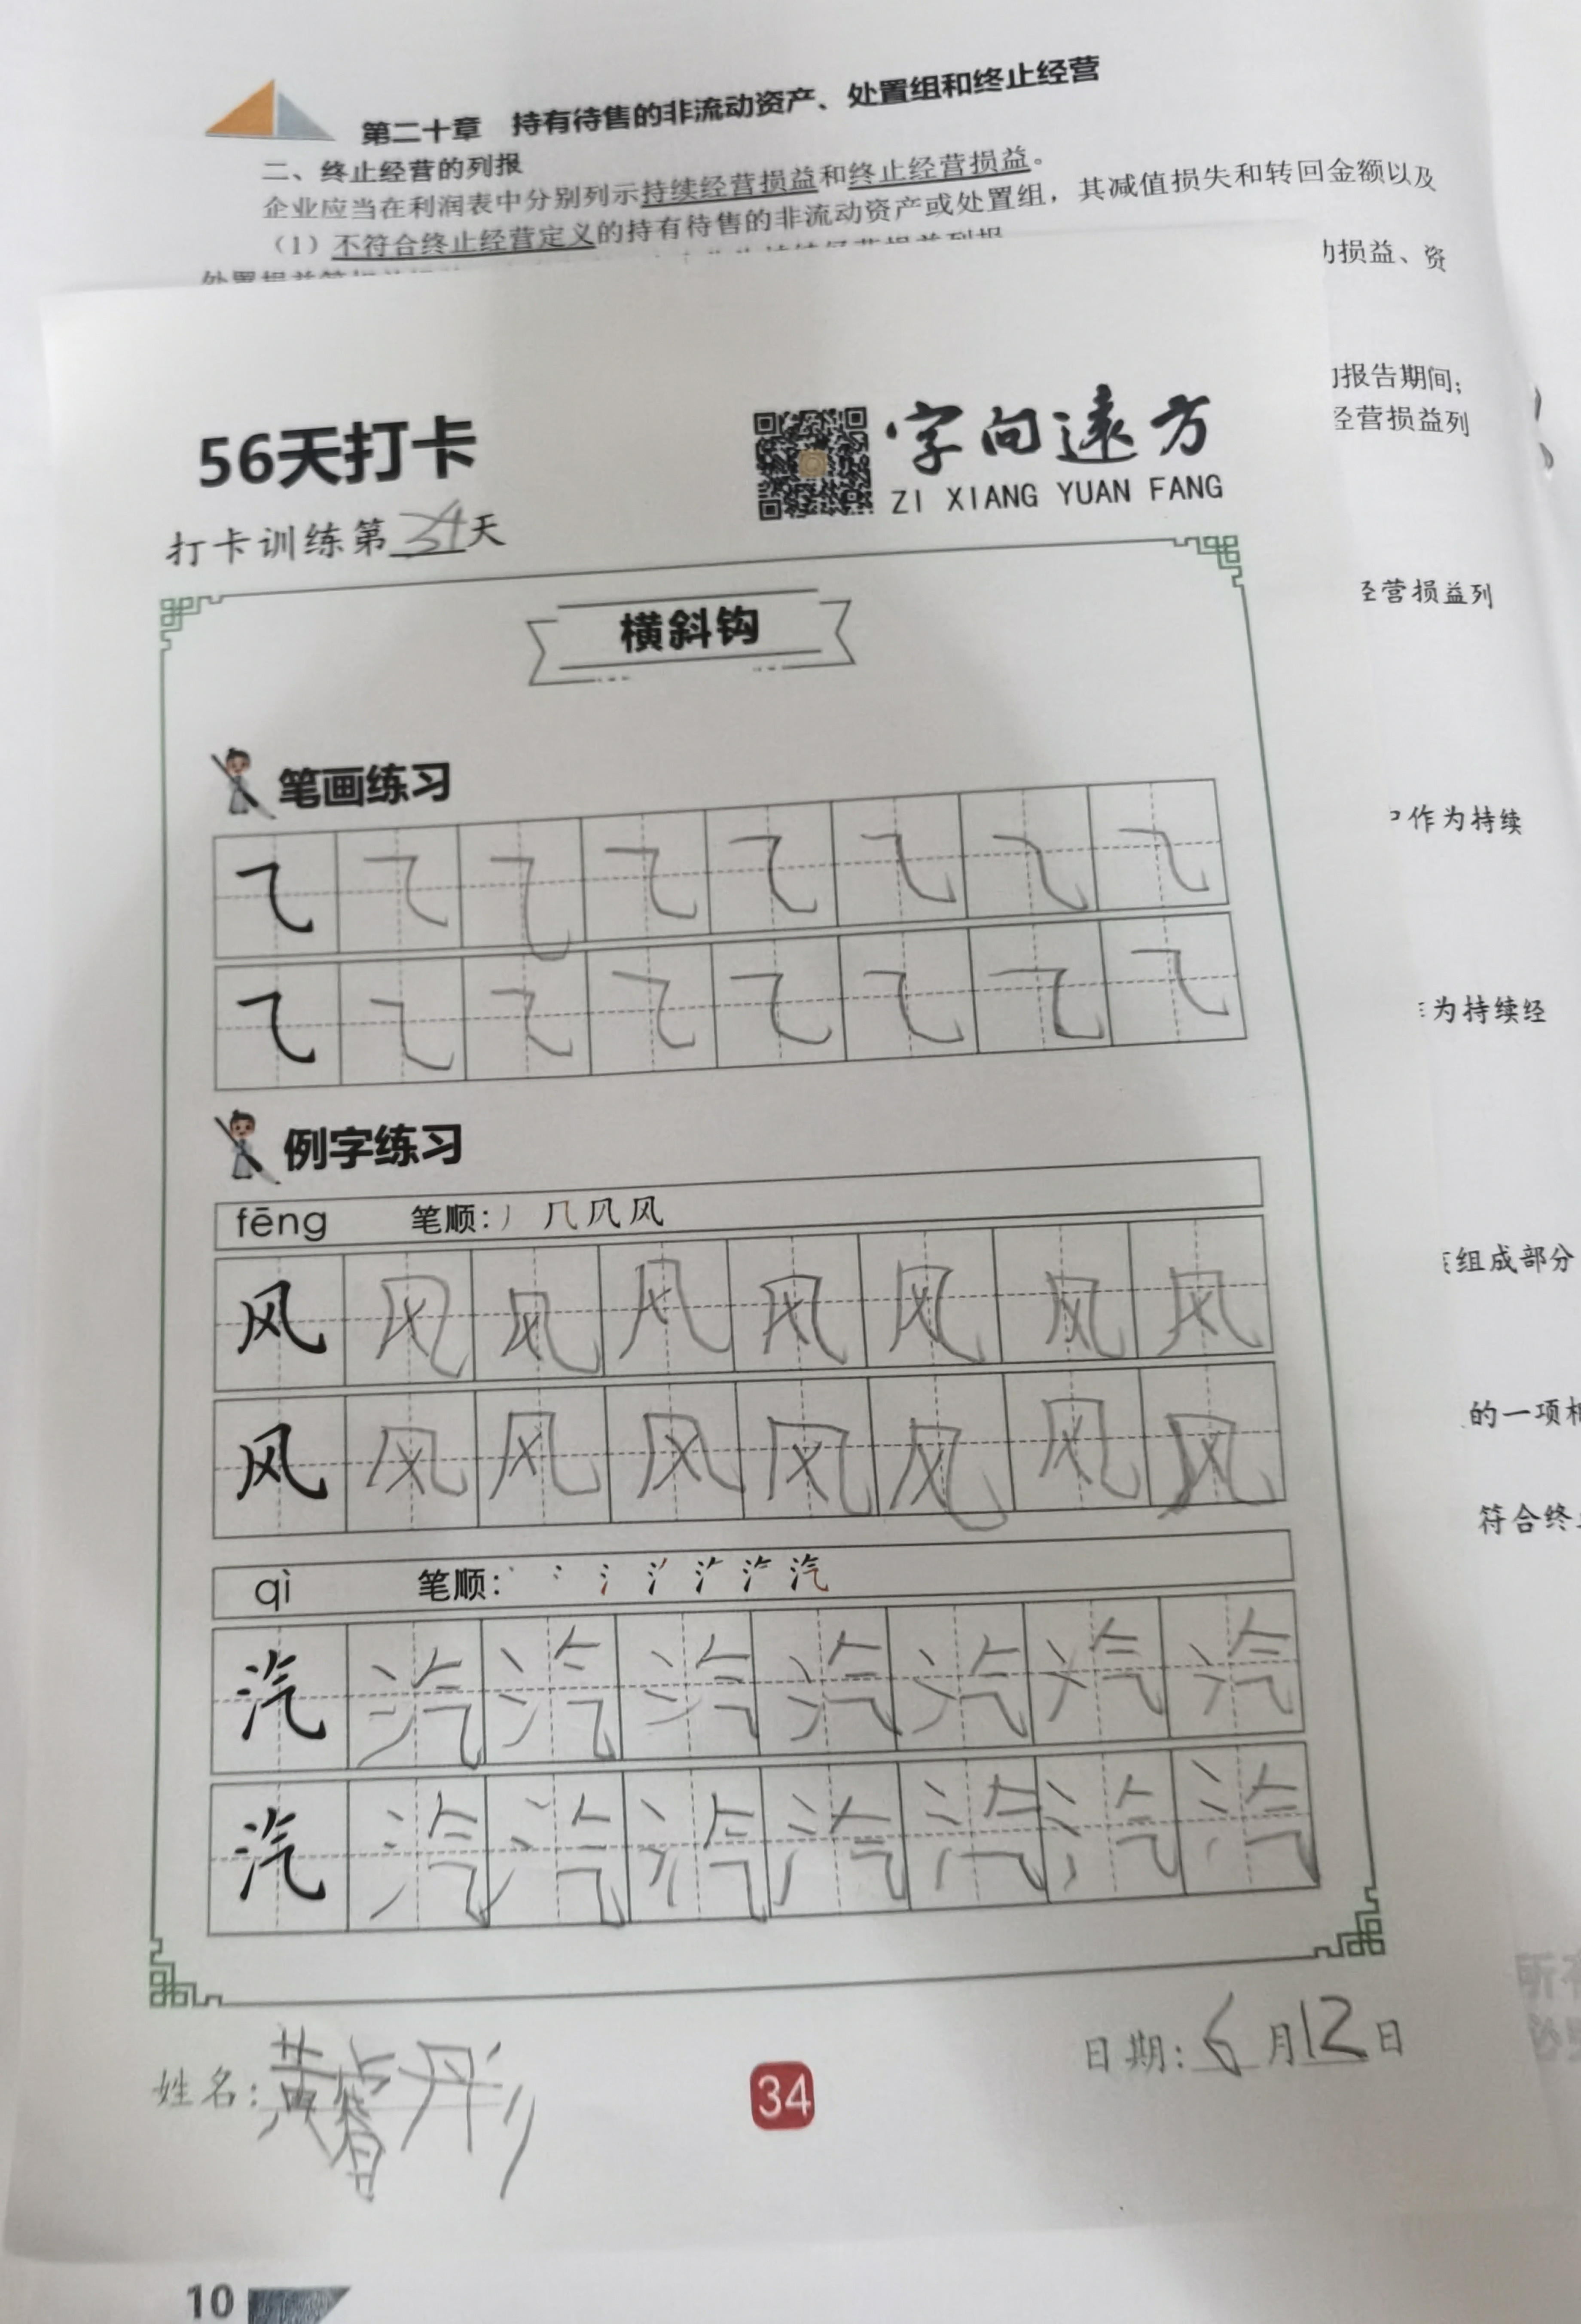 第二十章 持有待售的非流动资产、处置组和终止经营
二、终止经营的列报
企业应当在利润表中分别列示持续经营损益和终止经营损益。
（1）不符合终止经营定义的持有待售的非流动资产或处置组，其减值损失和转回金额以及
损益、资
报告期间；
经营损益列
56天打卡
字向遠方
ZI XIANG YUAN FANG
打卡训练第34天
经营损益列
横斜钩
笔画练习
作为持续
为持续经
例字练习
fēng 笔顺: 丿 几 风 风
组成部分
风 风 风 风 风 风 风 风
的一项相
风 风 风 风 风 风 风 风
符合终止
qì 笔顺: 汽
汽 汽 汽 汽 汽 汽 汽 汽
汽 汽 汽 汽 汽 汽 汽 汽
所有
姓名: 黄 彤
34
日期: 6月12日
10